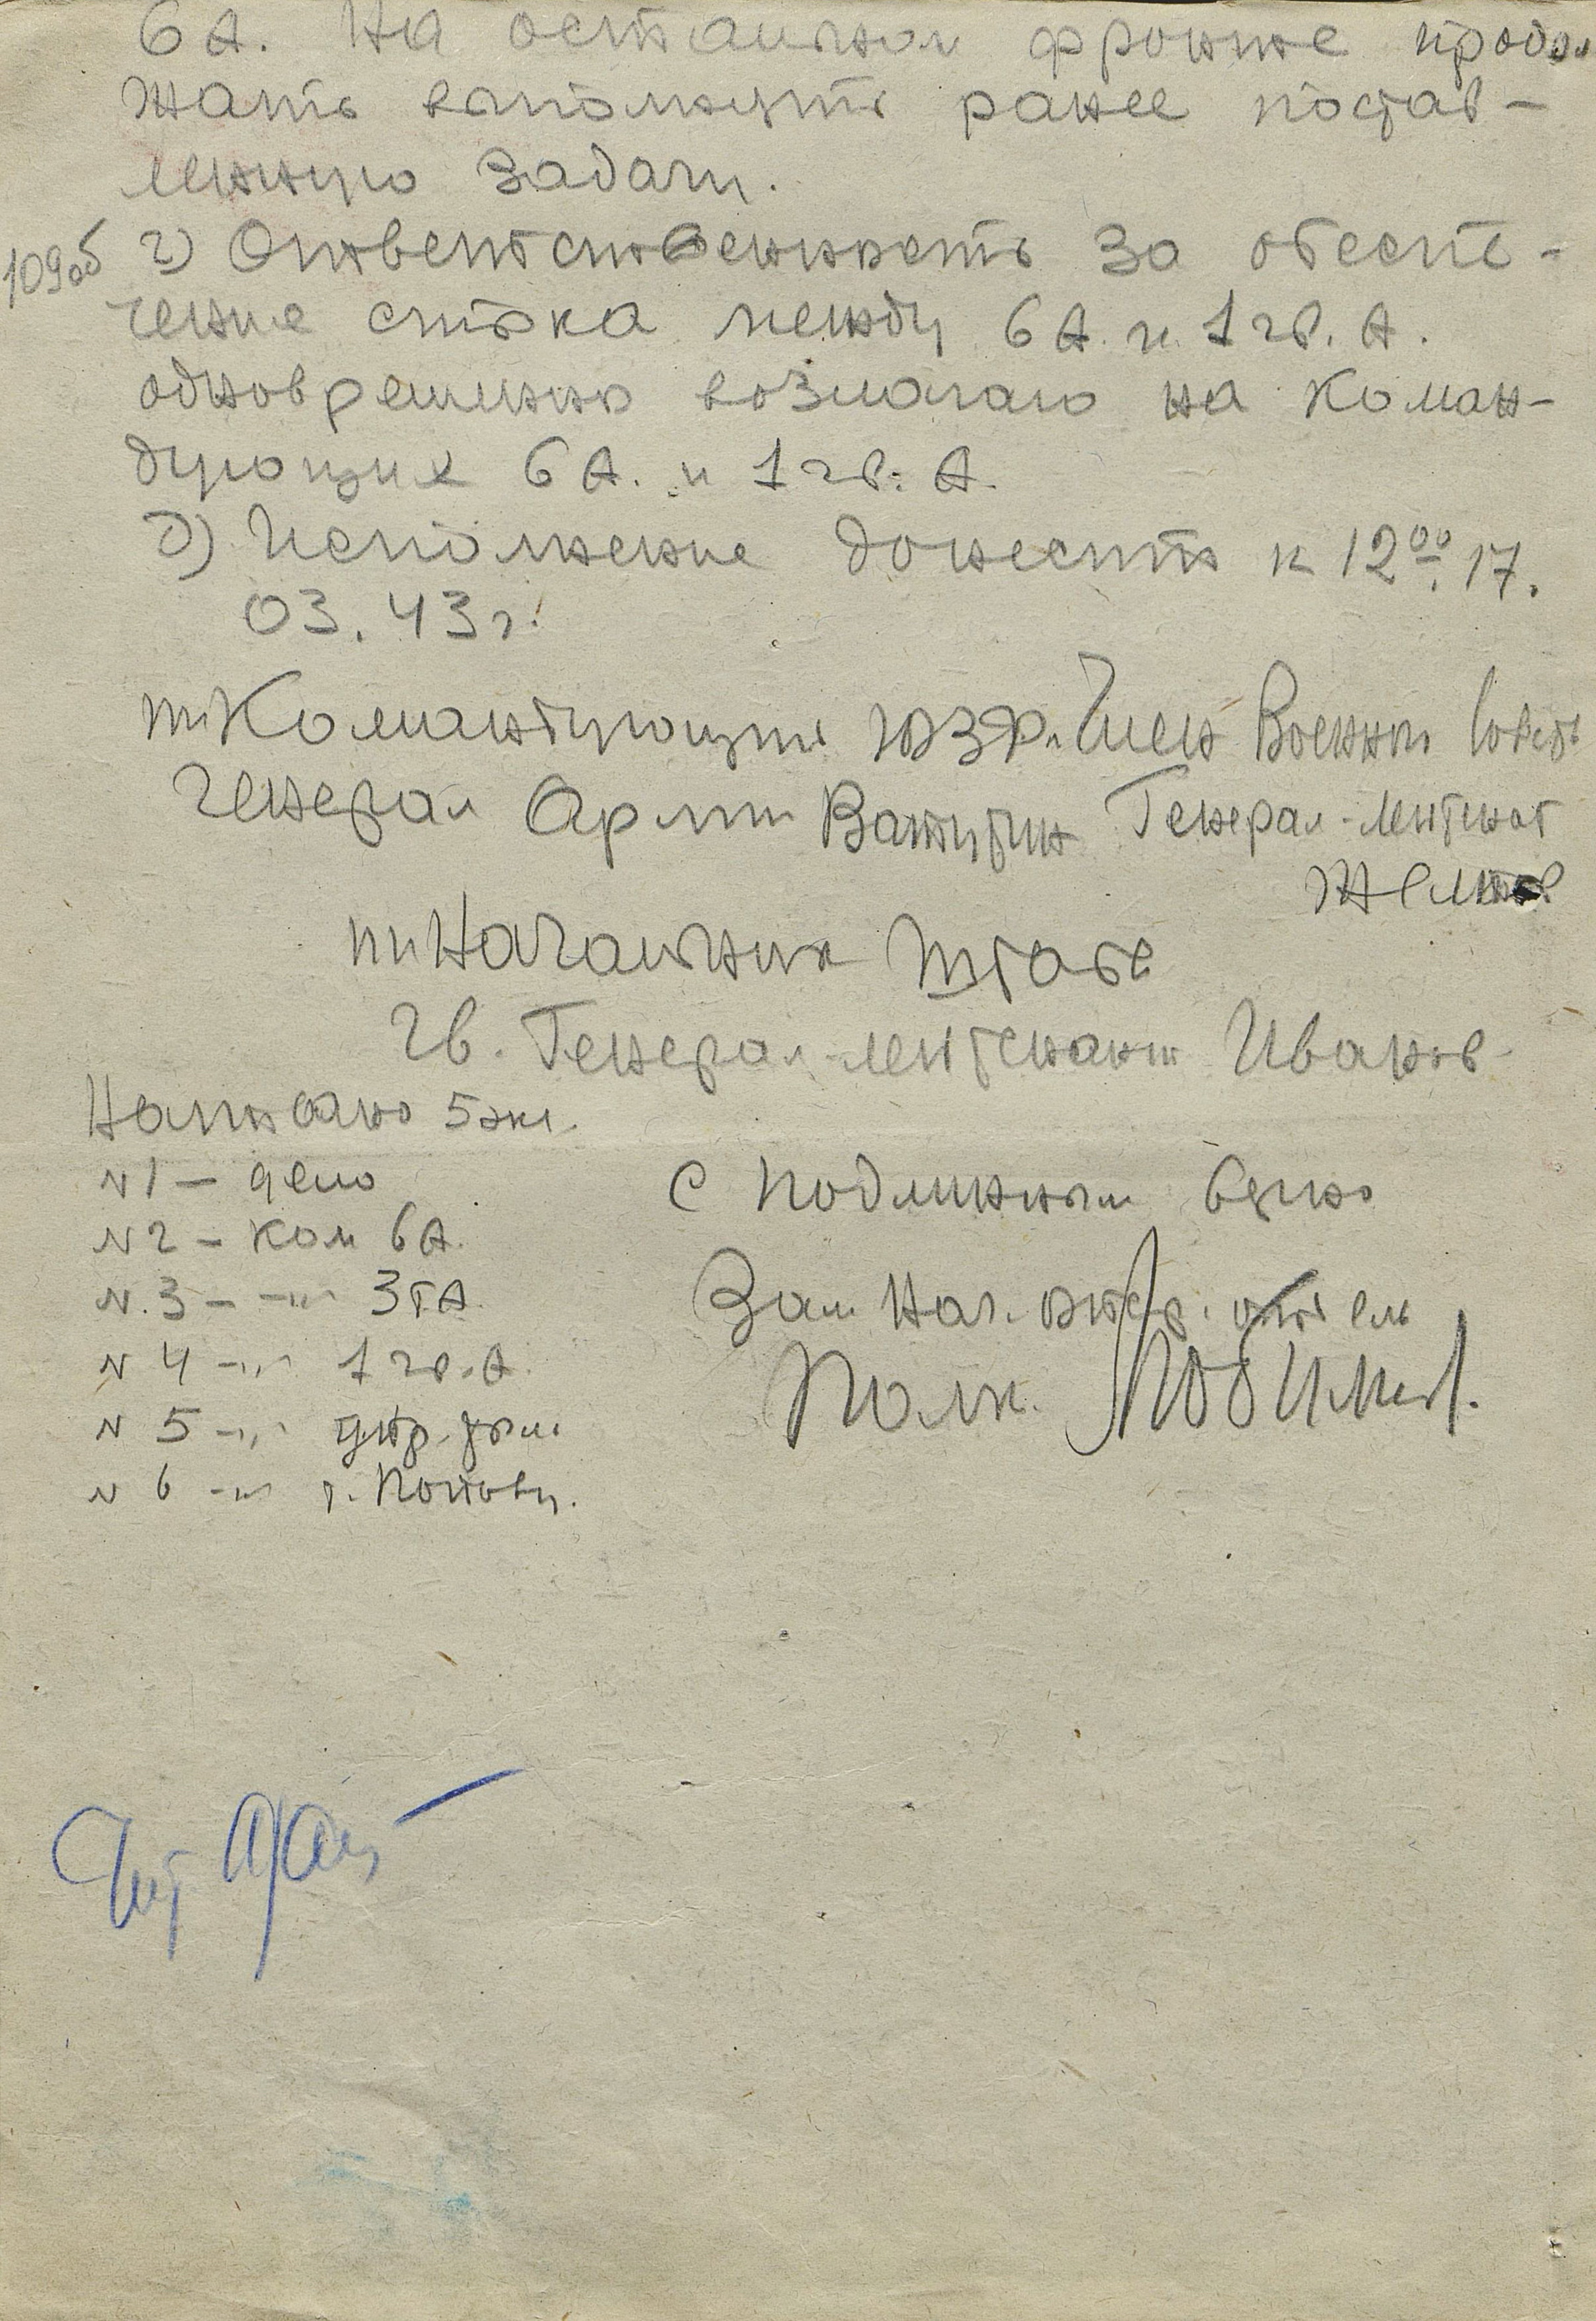 6 А. На остальном фронте продол
жать выполнять ранее постав-
ленную задачу.
109об г) Ответственность за обеспе-
чение стыка между 6 А. и 1 гв. А.
одновременно возлагаю на коман-
дующих 6 А. и 1 гв. А.
д) Исполнение донести к 12⁰⁰ 17.
03.43 г.
Командующий ЮЗФ. Член Военного Совета
Генерал Армии Ватутин Генерал-лейтенант
Желтов
Начальник штаба
Гв. Генерал-лейтенант Иванов
Написано 5 экз.
N 1 – дело
С подлинным верно
N 2 – Ком 6 А.
N. 3 – -"- 3 ТА.
Зам Нач. опер. отдела
N 4 -"- 1 гв. А.
Полк.
N 5 -"-
N 6 -"- г. Попову.